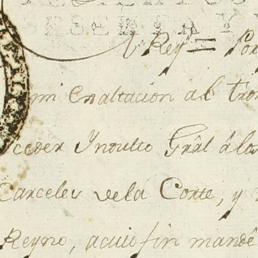 Rey = Por
mi Exaltacion al Tro
ceder Indulto Gral á los
Carceles de la Corte, y
Reyno, a cuio fin mandé